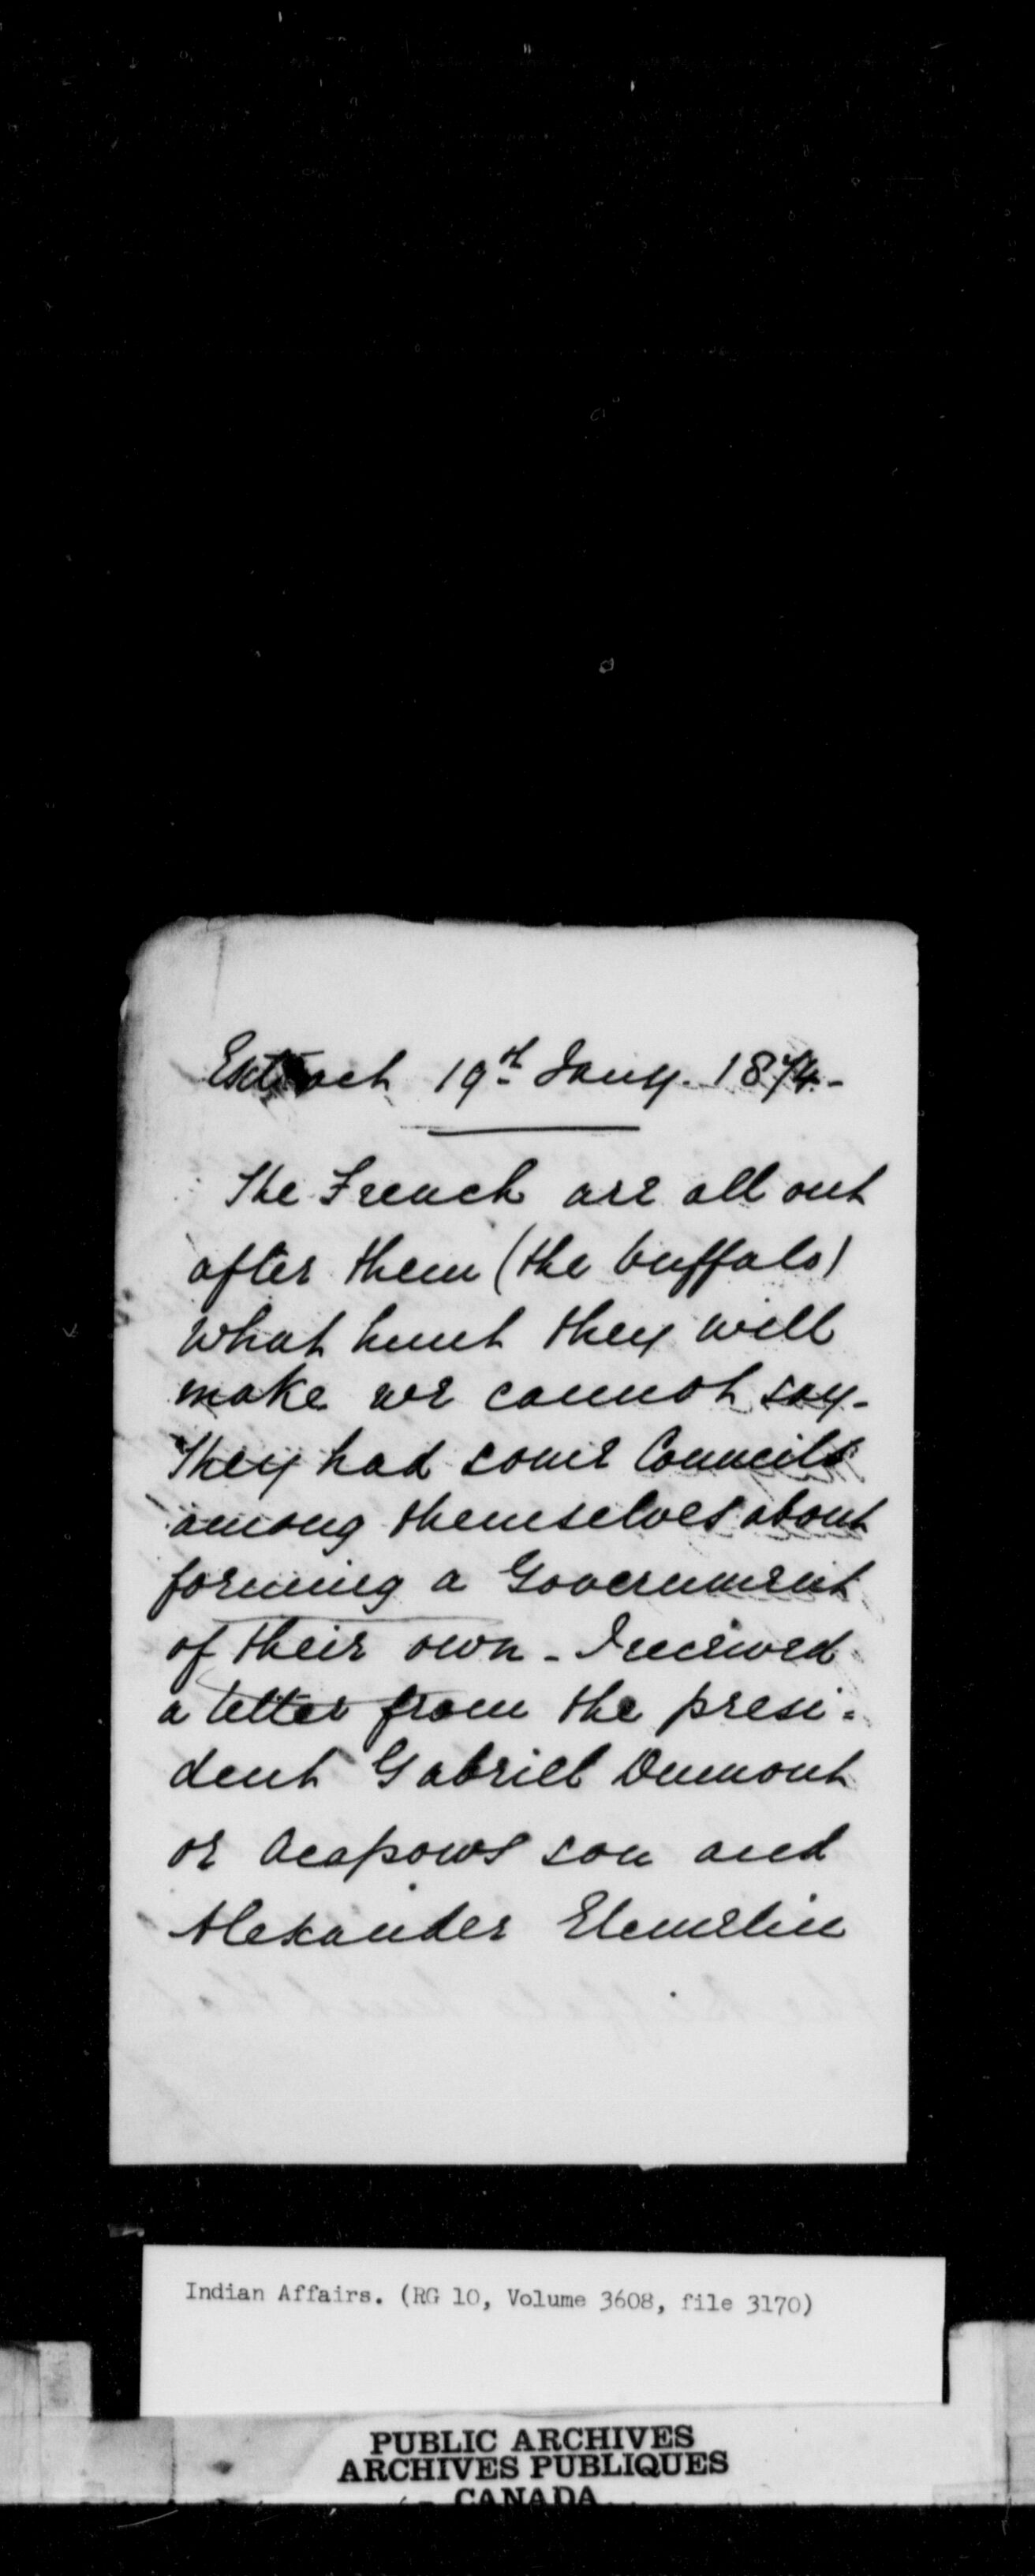 Extract 19th Jany. 1874.-
The French are all out
after them (the buffalo)
what hunt they will
make we cannot say-
They had some Councils
among themselves about
forming a Government
of their own - I received
a letter from the presi-
dent Gabriel Dumont
or Acapows son and
Alexander
Indian Affairs. (RG 10, Volume 3608, file 3170)
PUBLIC ARCHIVES
ARCHIVES PUBLIQUES
CANADA